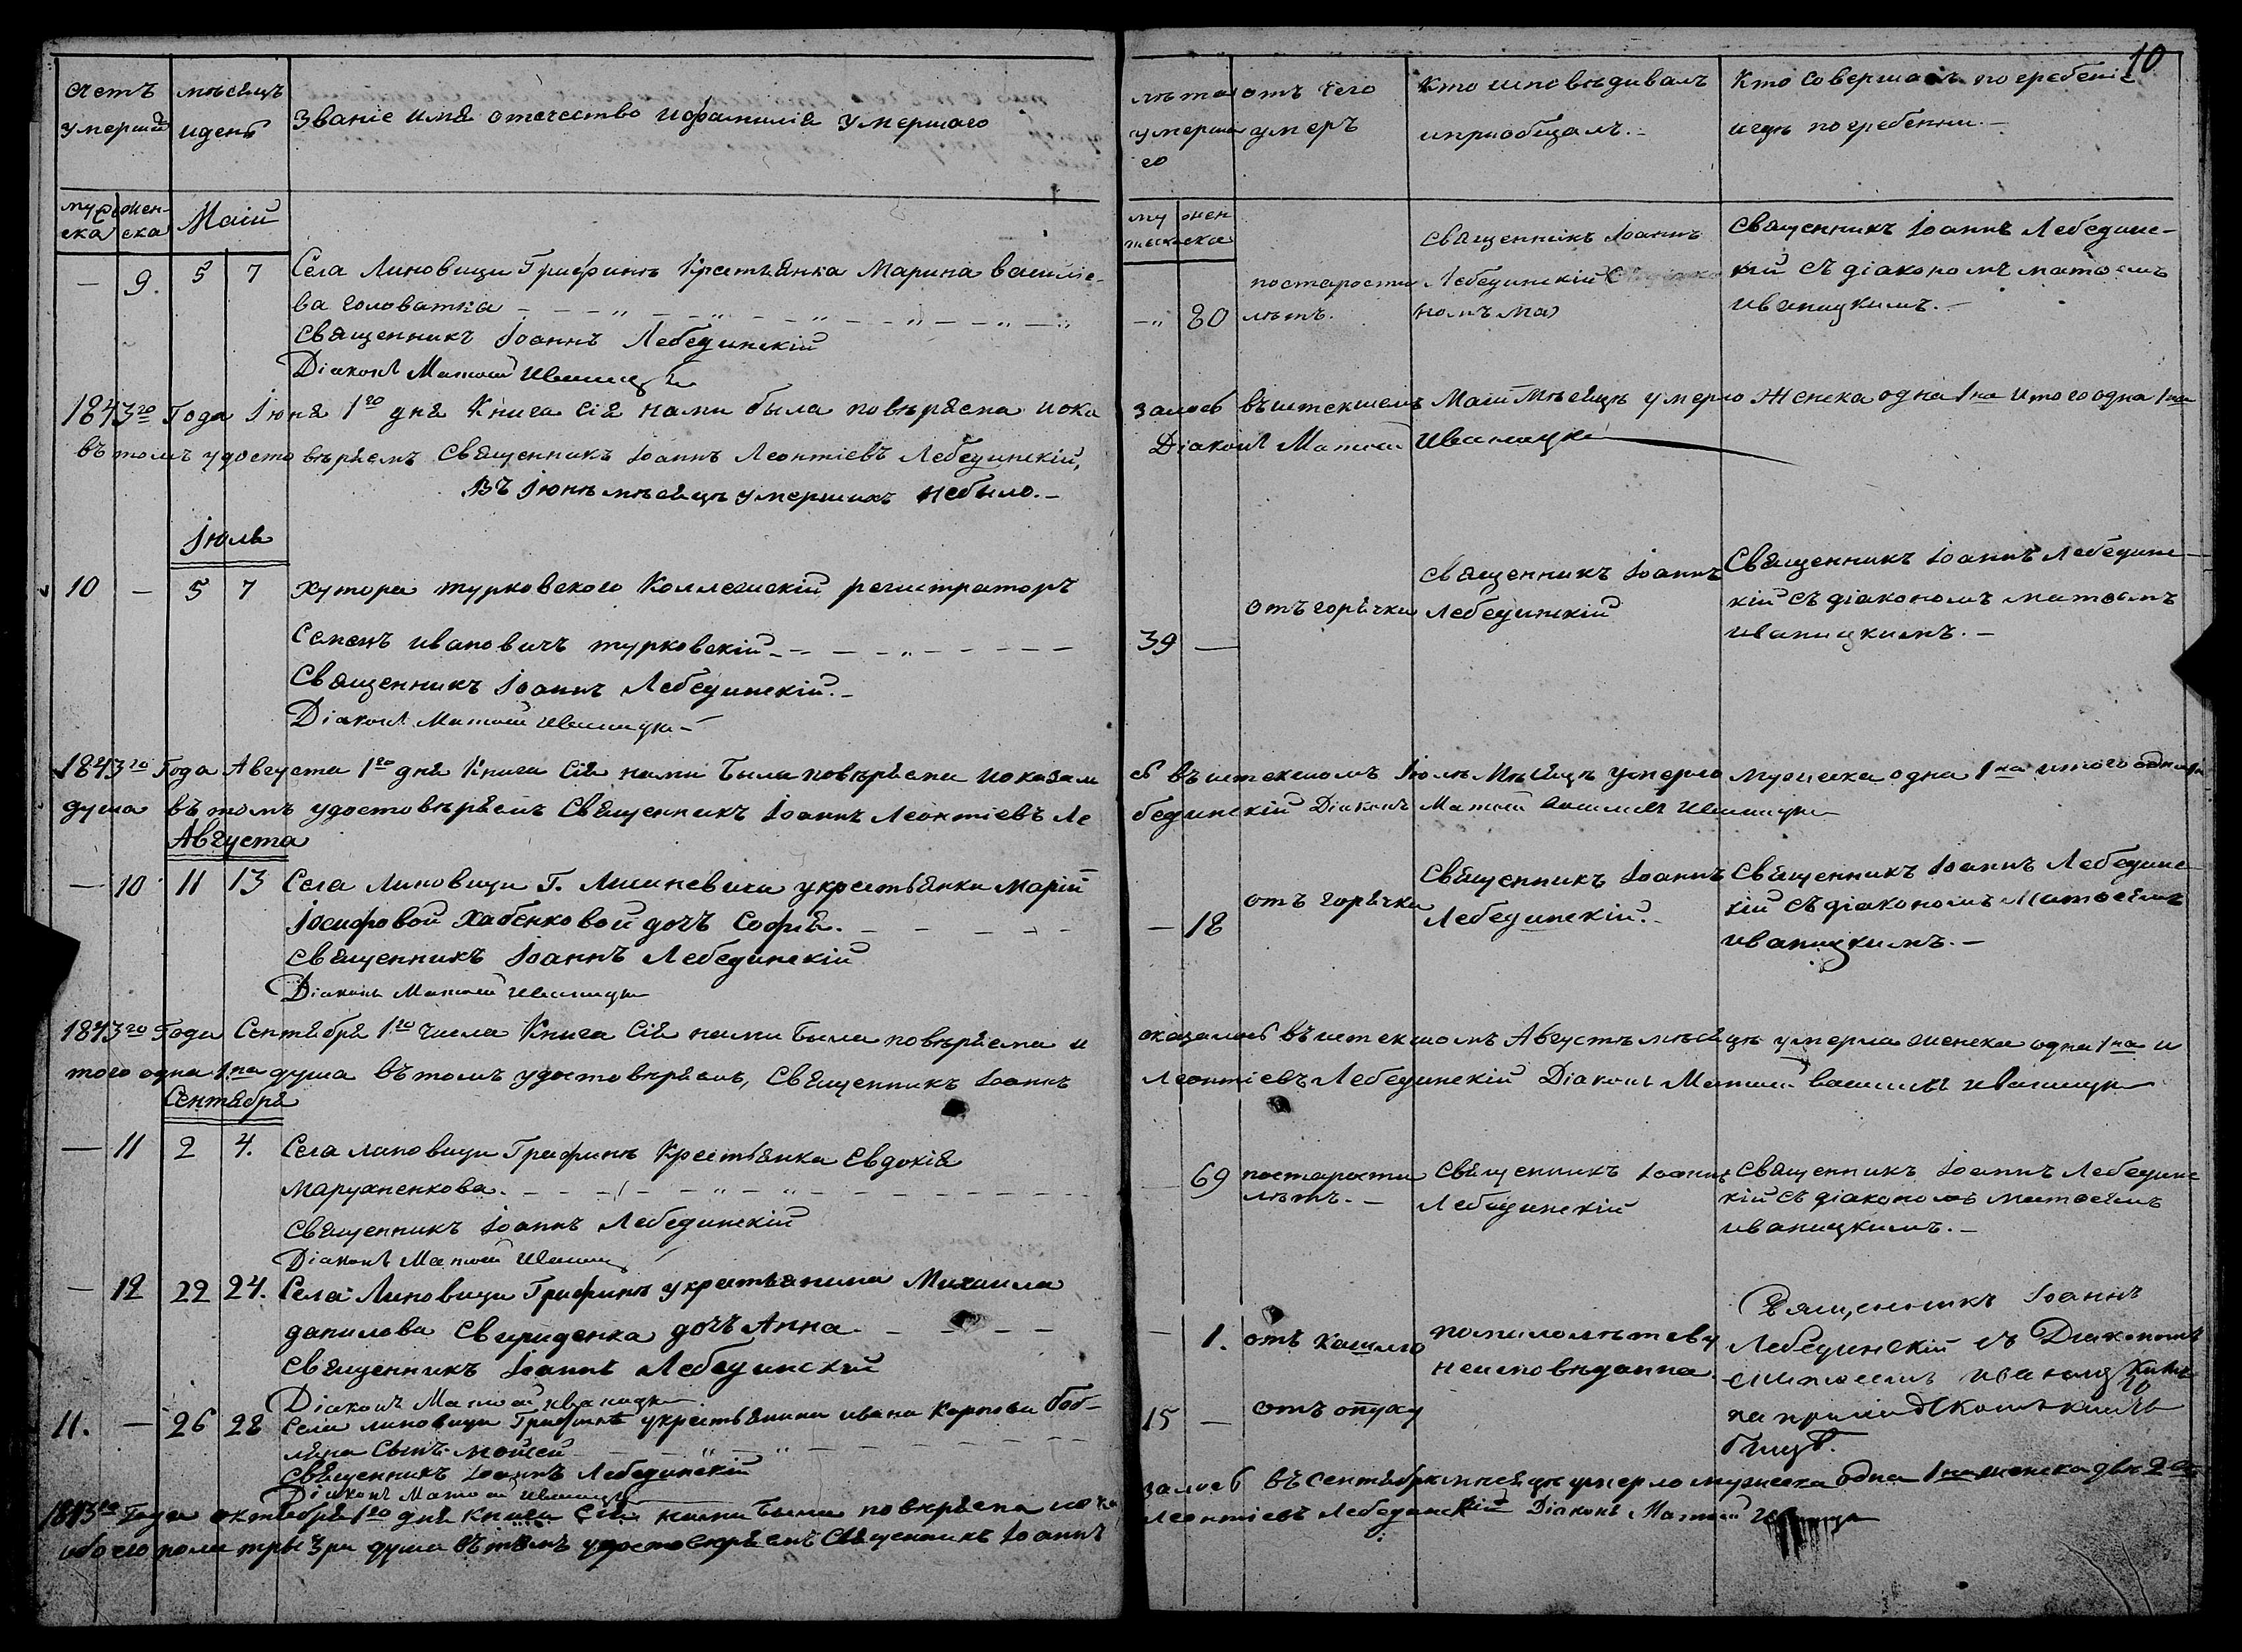 10
счетъ умершихъ
мѣсяцъ и день
Званіе имя отечество и фамилія умершаго
лѣта умершаго
отъ чего умеръ
Кто исповѣдивалъ и пріобщалъ.
Кто совершалъ погребеніе и гдѣ погребены.
мужеска
женска
Маій
мужеска
женска
— 9. 5 7 Села Липовицы Графинѣ Крестьянка Марина Василіе-
ва Головатка
Священникъ Іоаннъ Лебединскій
Діаконъ Матѳей Иваницкій
— 80
по старости
лѣтъ.
Священникъ Іоаннъ
Лебединскій
Священникъ Іоаннъ Лебединс-
кій съ діакономъ Матѳемъ
Иваницкимъ.
1843го Года Іюня 1го дня Книга сія нами была повѣряема и ока
залось въ истекшемъ Маіи Мѣсяцѣ умерло Женска одна 1на итого одна 1на
въ томъ удостовѣряемъ Священникъ Іоаннъ Леонтіевъ Лебединскій,
Діаконъ Матѳей Иваницкій
Въ Іюнѣ мѣсяцѣ умершихъ небыло.
Іюля
10 — 5 7 Хутора Турковского Коллежскій регистраторъ
Семенъ Ивановичъ Турковскій
Священникъ Іоаннъ Лебединскій.
Діаконъ Матѳей Иваницкій
39 —
отъ горячки
Священникъ Іоаннъ
Лебединскій
Священникъ Іоаннъ Лебединс-
кій съ діакономъ Матѳемъ
Иваницкимъ.
1843го Года Августа 1го дня Книга Сія нами была повѣряема и оказало
сь въ истекшомъ Іюлѣ Мѣсяцѣ умерло мужеска одна 1на итого одна
душа въ томъ удостовѣряемъ Священникъ Іоаннъ Леонтіевъ Ле
бединскій Діаконъ Матѳей Иваницкій
Августа
— 10 11 13 Села Липовицы Г. у крестьянки Маріи
Іосифовой Хабенковой дочъ Софія.
Священникъ Іоаннъ Лебединскій
Діаконъ Матѳей Иваницкій
— 18
отъ горячки
Священникъ Іоаннъ
Лебединскій.
Священникъ Іоаннъ Лебединс-
кій съ діакономъ Матѳеемъ
Иваницкимъ.
1843го Года Сентября 1го числа Книга Сія нами была повѣряема и
оказалось въ истекшомъ Августѣ мѣсяцѣ умерла женска одна 1на и
того одна 1на душа въ томъ удостовѣряемъ, Священникъ Іоаннъ
Леонтіевъ Лебединскій Діаконъ Матѳей Иваницкій
Сентября
— 11 2 4. Села Липовицы Графинѣ Крестьянка Евдокія
Марухненкова.
Священникъ Іоаннъ Лебединскій
Діаконъ Матѳей Иваницкій
— 69
по старости
лѣтъ.
Священникъ Іоаннъ
Лебединскій
Священникъ Іоаннъ Лебединс
кій съ діакономъ Матѳеемъ
Иваницкимъ.
— 12 22 24. Села Липовицы Графинѣ у крестьянина Михаила
Данилова Свириденка дочъ Анна.
Священникъ Іоаннъ Лебединскій
Діаконъ Матѳей Иваницкій
— 1.
отъ кашлю
по малолѣтеву
неисповѣданна
Священникъ Іоаннъ
Лебединскій съ Діакономъ
11. — 26 28 Села Липовицы Графинѣ у крестьянина Ивана Карпова Боб-
сынъ Моисей
Священникъ Іоаннъ Лебединскій
Діаконъ Матѳей Иваницкій
15 —
отъ опуху
1843го Года Октября 1го дня Книга Сія нами была повѣряема и ока
залось въ Сентябрѣ мѣсяцѣ умерло мужеска одна 1на женска двѣ 2
обоего пола три 3ри души въ томъ удостовѣряемъ Священникъ Іоаннъ
Леонтіевъ Лебединскій Діаконъ Матѳей